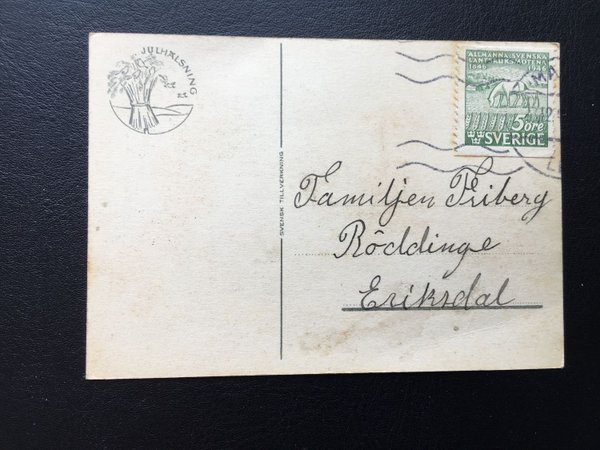 JULHÄLSNING
ALLMÄNNA SVENSKA
LANTBRUKSMÖTENA
1846 1946
5 öre
SVERIGE
SVENSK TILLVERKNING
Familjen Friberg
Röddinge
Eriksdal